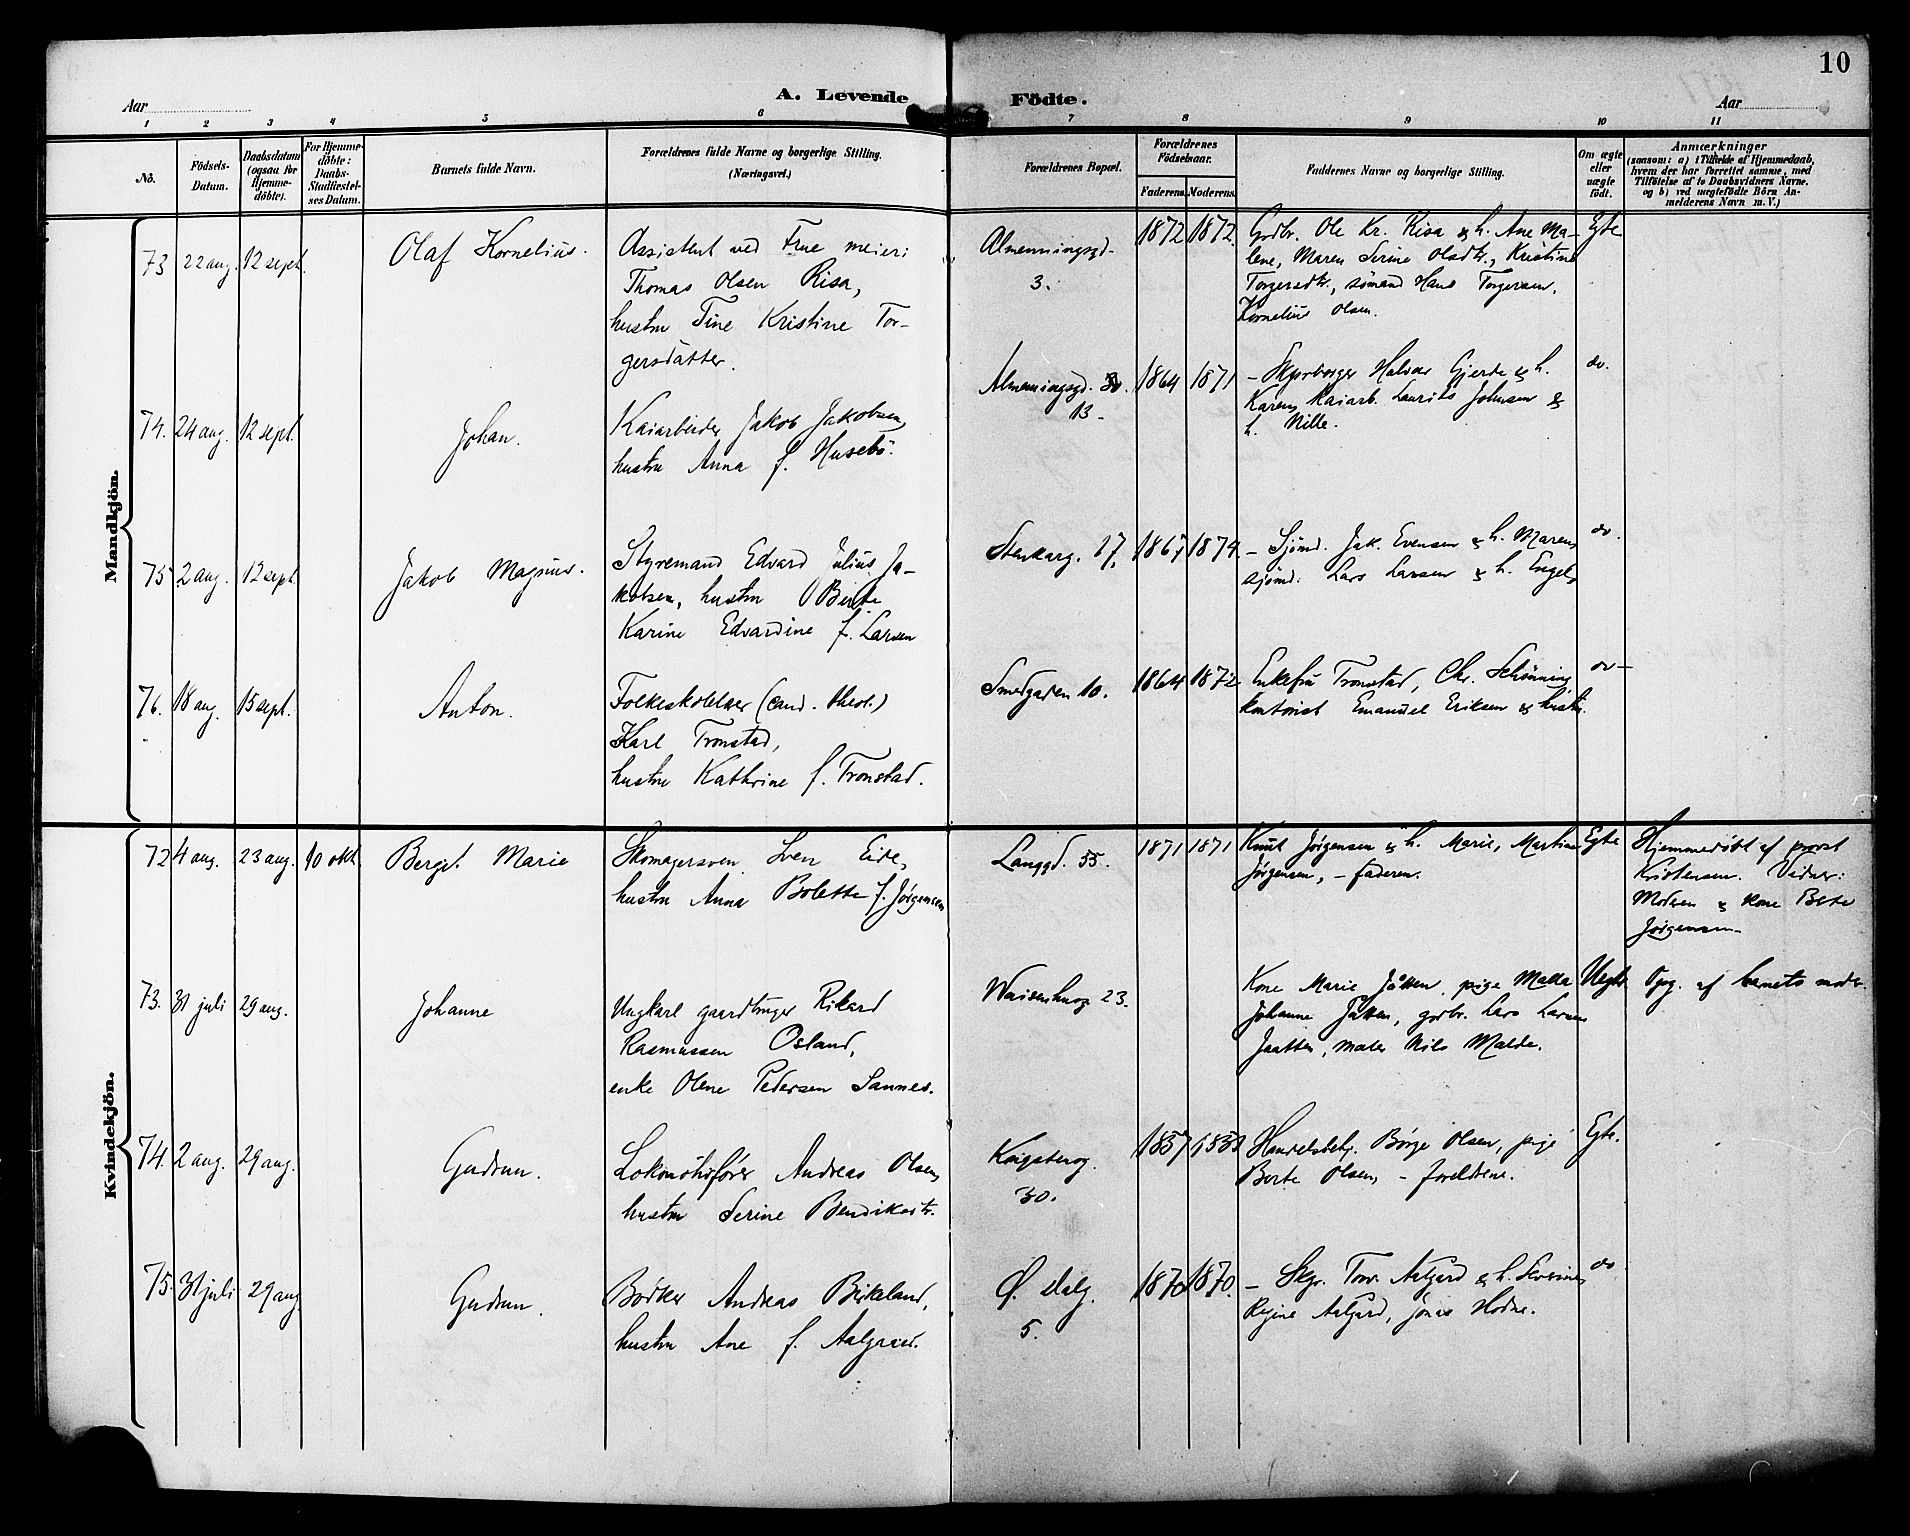 10
A. Levende
Födte.
Aar
Aar
1 2 3 4 5 6 7 8 9 10 11
No.
Födsels-
Datum.
Daabsdatum
(ogsaa for
Hjemme-
döbte).
For Hjemme-
döbte:
Daabs-
Stadfæstel-
ses Datum.
Barnets fulde Navn.
Forældrenes fulde Navne og borgerlige Stilling.
(Næringsvei.)
Forældrenes Bopæl.
Forældrenes
Födselsaar.
Faderens. Moderens.
Faddernes Navne og borgerlige Stilling.
Om ægte
eller
uægte
födt.
Anmærkninger
(saasom: a) i Tilfælde af Hjemmedaab,
hvem der har forrettet samme, med
Tilföielse af to Daabsvidners Navne,
og b) ved uægtefödte Börn An-
melderens Navn m. V.)
Mandkjön.
73 22 aug. 12 sept. Olaf Kornelius.
Assistent ved Frue meieri
Thomas Olsen Risa,
hustru Tine Kristine Tor-
gersdatter.
Almenningsgd.
3.
1872 1872.
Grdbr. Ole Kr. Risa & h. Ane Ma-
lene, Maren Serine Olsdtr., Kristine
Torgersdtr., sømand Hans Torgersen,
Kornelius Olsen.
Egte
74. 24 aug. 12 sept. Johan.
Kaiarbeider Jakob Jakobsen,
hustru Anna f. Husebö.
Almenningsgd.
13
1864 1871
- Halvor Gjerde & h.
Karen, Kaiarb. Laurits Johnsen &
h. Nille.
do.
75 2 aug. 12 sept. Jakob Magnus.
Styremand Edvard Julius Ja-
kobsen, hustru Berte
Karine Edvardine f. Larsen
Stenkarg. 17.
1867 1874
- Sjömd. Jak. Evensen & h. Maren,
sjömd. Lars Larsen & h. Engel,
do.
76. 18 aug. 15 sept. Anton.
Folkeskolelærer (cand. theol.)
Karl Tronstad,
hustru Kathrine f. Tronstad.
Smedgaden 10.
1864 1872
Enkefru Tronstad, Chr. Schinning,
kontorist Emanuel Eriksen & hustru.
do -
Kvindekjön.
72 4 aug. 23 aug. 10 okt. Berget Marie
Skomagersven Sven Eide,
hustru Anna Bolette f. Jørgensen
Langgd. 55.
1871 1871
Knut Jørgensen & h. Marie, Martine
Jørgensen, - faderen.
Egte
Hjemmedöbt af provst
Kristensen. Vidner:
Moderen & kone Berte
Jørgensen
73. 31 juli 29 aug. Johanne
Ungkarl gaardbruger Rikard
Rasmussen Osland,
enke Olene Pedersen Sannes.
Waisenhusg 23.
Kone Marie Jåtten, pige Malla
Johanne Jåtten, grdbr. Lars Larsen
Jaatten, maler Nils Malde.
Uegte
Opg. af barnets moder.
74. 2 aug. 29 aug. Gudrun.
Lokomotivfører Andreas Olsen,
hustru Serine Bendiksdtr.
30.
1857
Handelsbetj. Børge Olsen, pige
Berte Olsen, - forældrene.
Egte.
75. 31 juli 29 aug. Gudrun.
Bødker Andreas Birkeland,
hustru Ane f. Aalgaard.
Ø. dalg.
5.
1870 1870.
- Skgr. Torv. Aalgard & h. Severine,
Regine Aalgard, Jonas Hodne.
do